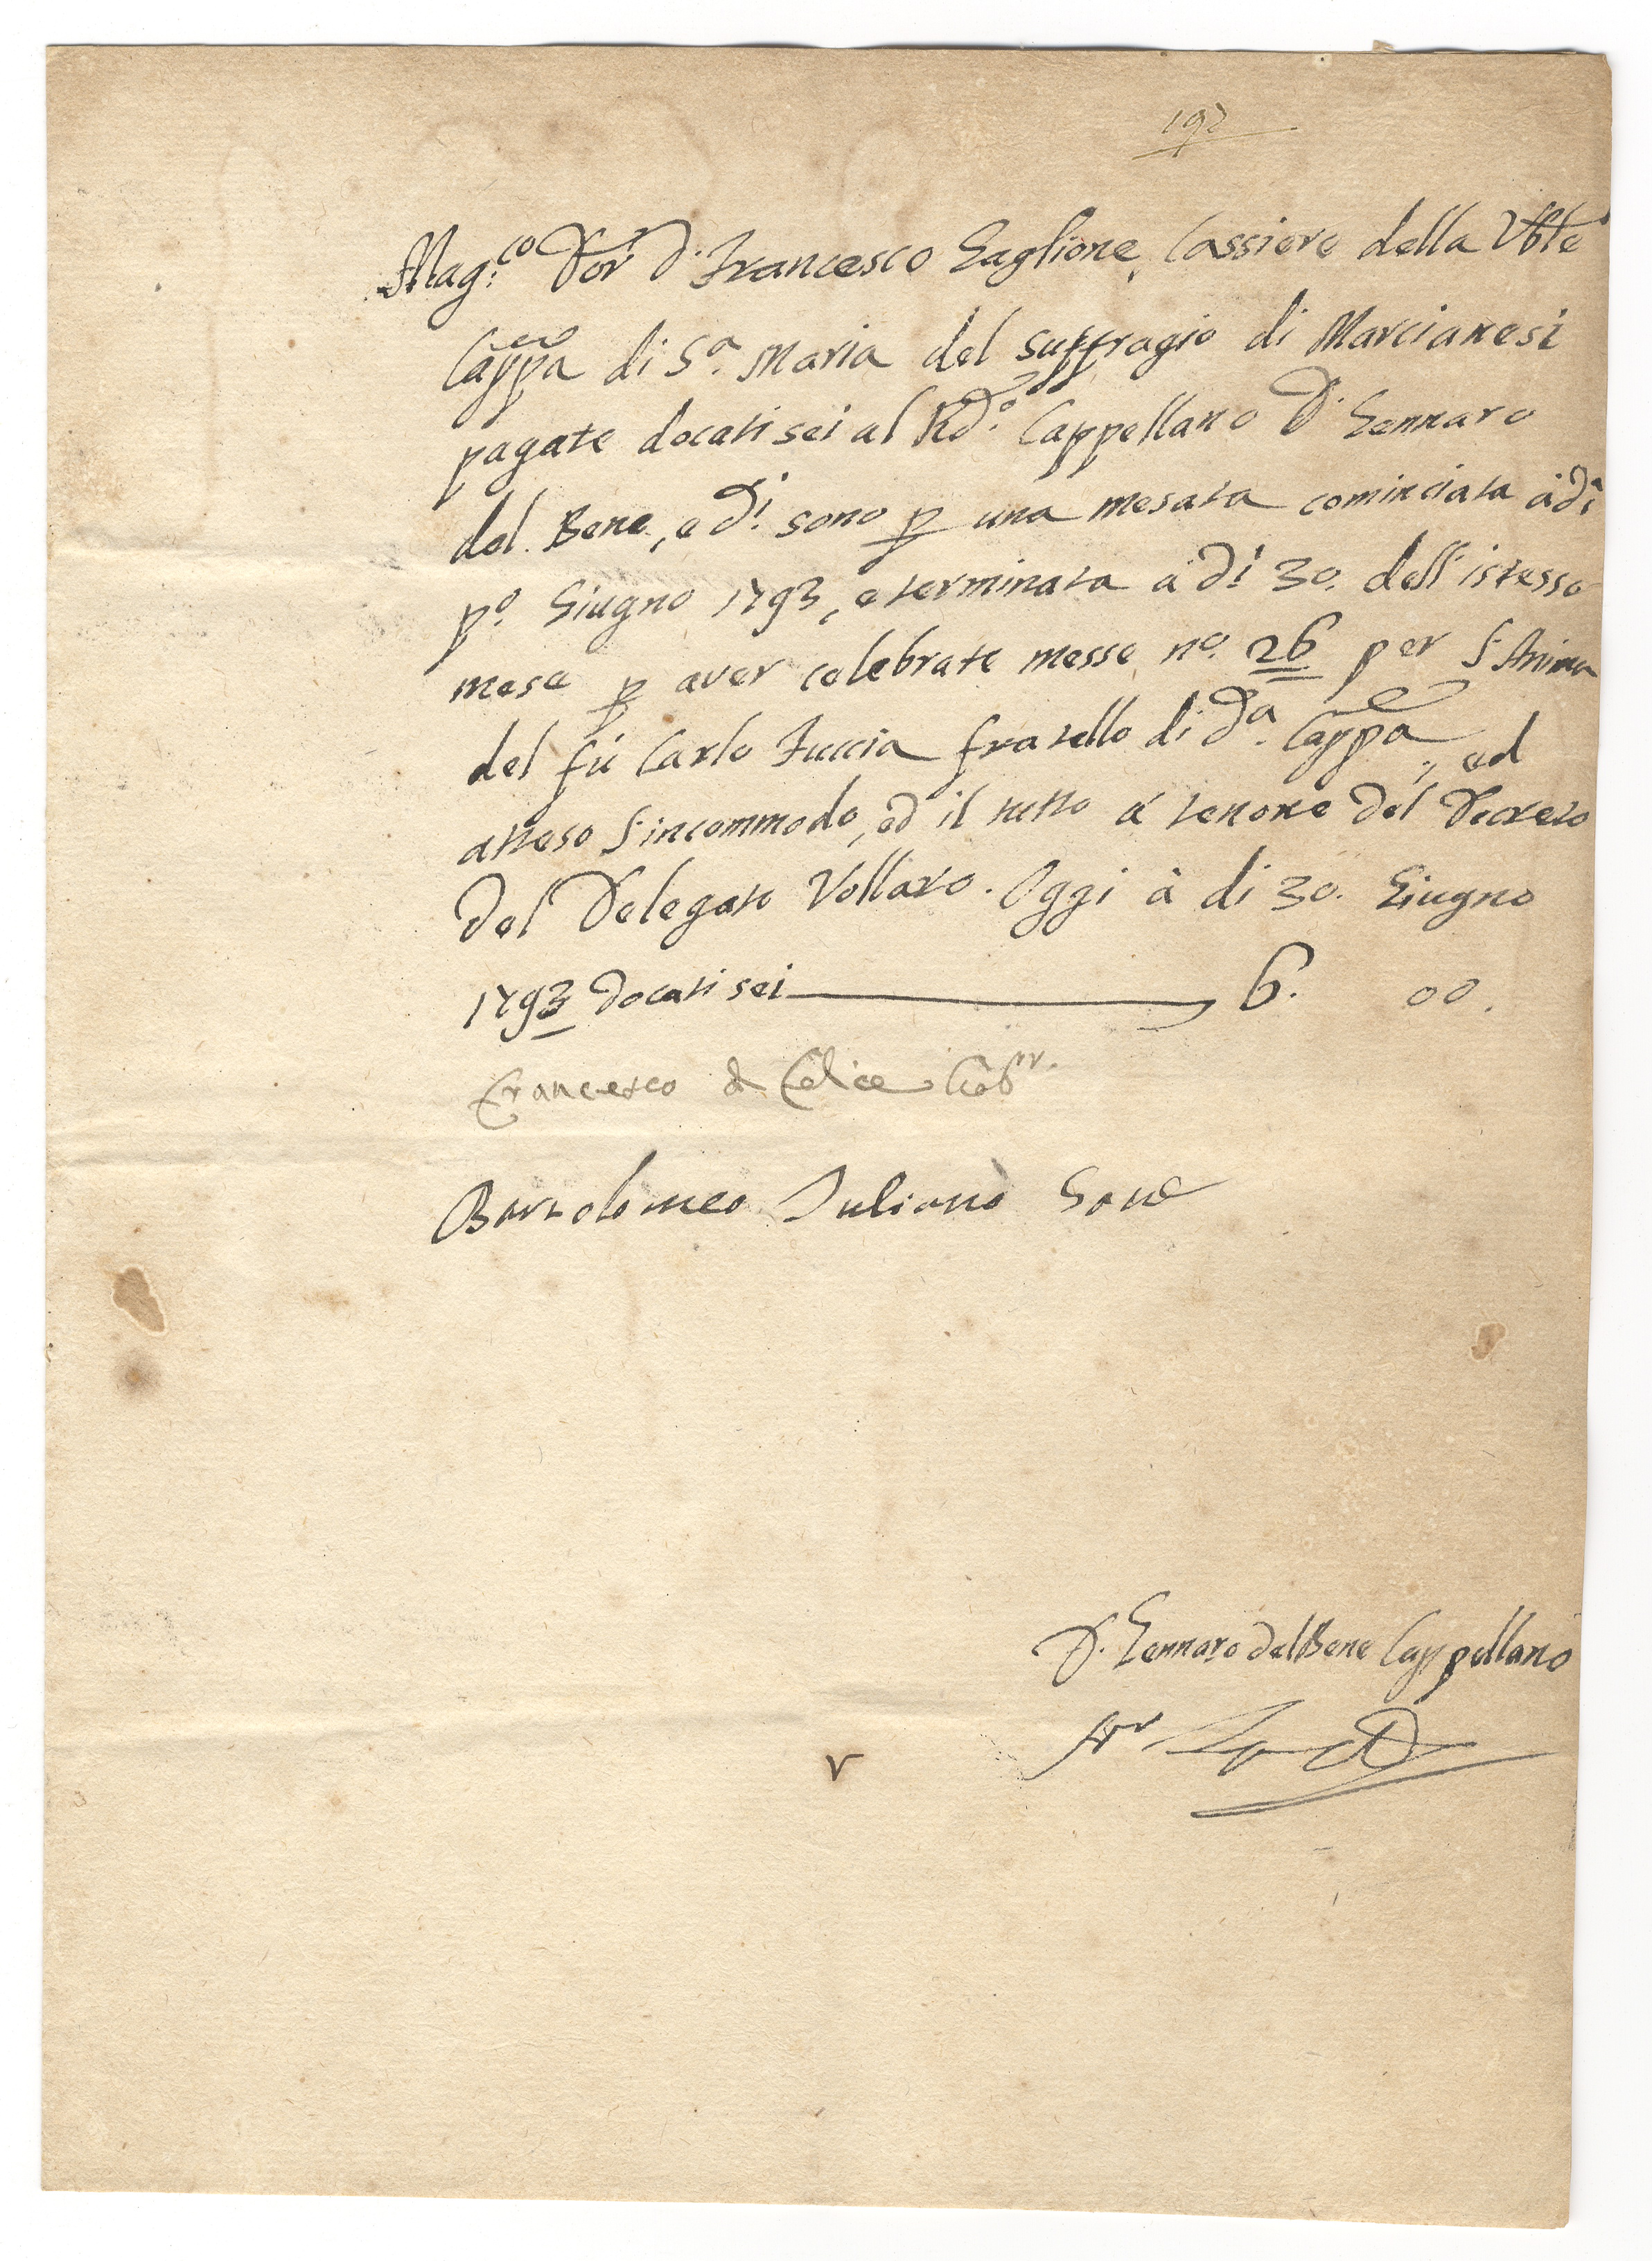 Mag.co Dor D. Francesco Gaglione, Cassiere della Vble
Cappa di S.a Maria del Suffragio di Marcianesi
pagate docati sei al Rdo. Cappellano D. Gennaro
del Bene, e d.i sono p una mesata cominciata à di
p.o Giugno 1793, e terminata à di 30. dell'istesso
mese p aver celebrate messe no. 26 per l'Anima
del fú Carlo Fuccia fratello di da. Cappa, ed
atteso l'incommodo, ed il tutto à tenore del Decreto
del Delegato Vollaro. Oggi à di 30. Giugno
1793 docati sei 6. 00.
Francesco di Felice
Bartolomeo Iuliano
D. Gennaro del Bene Cappellano